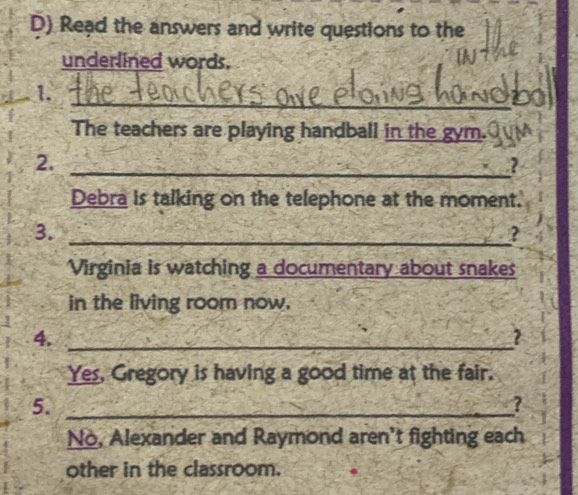 D) Read the answers and write questions to the
underlined words.
in the
1. the teachers are plaing handball
The teachers are playing handball in the gym. gym
2. ?
Debra is talking on the telephone at the moment.
3. ?
Virginia is watching a documentary about snakes
in the living room now.
4. ?
Yes, Gregory is having a good time at the fair.
5. ?
No, Alexander and Raymond aren't fighting each
other in the classroom.